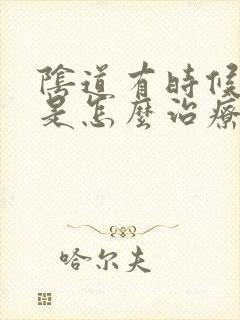 陰道有時候
是怎麼治療
哈尔夫